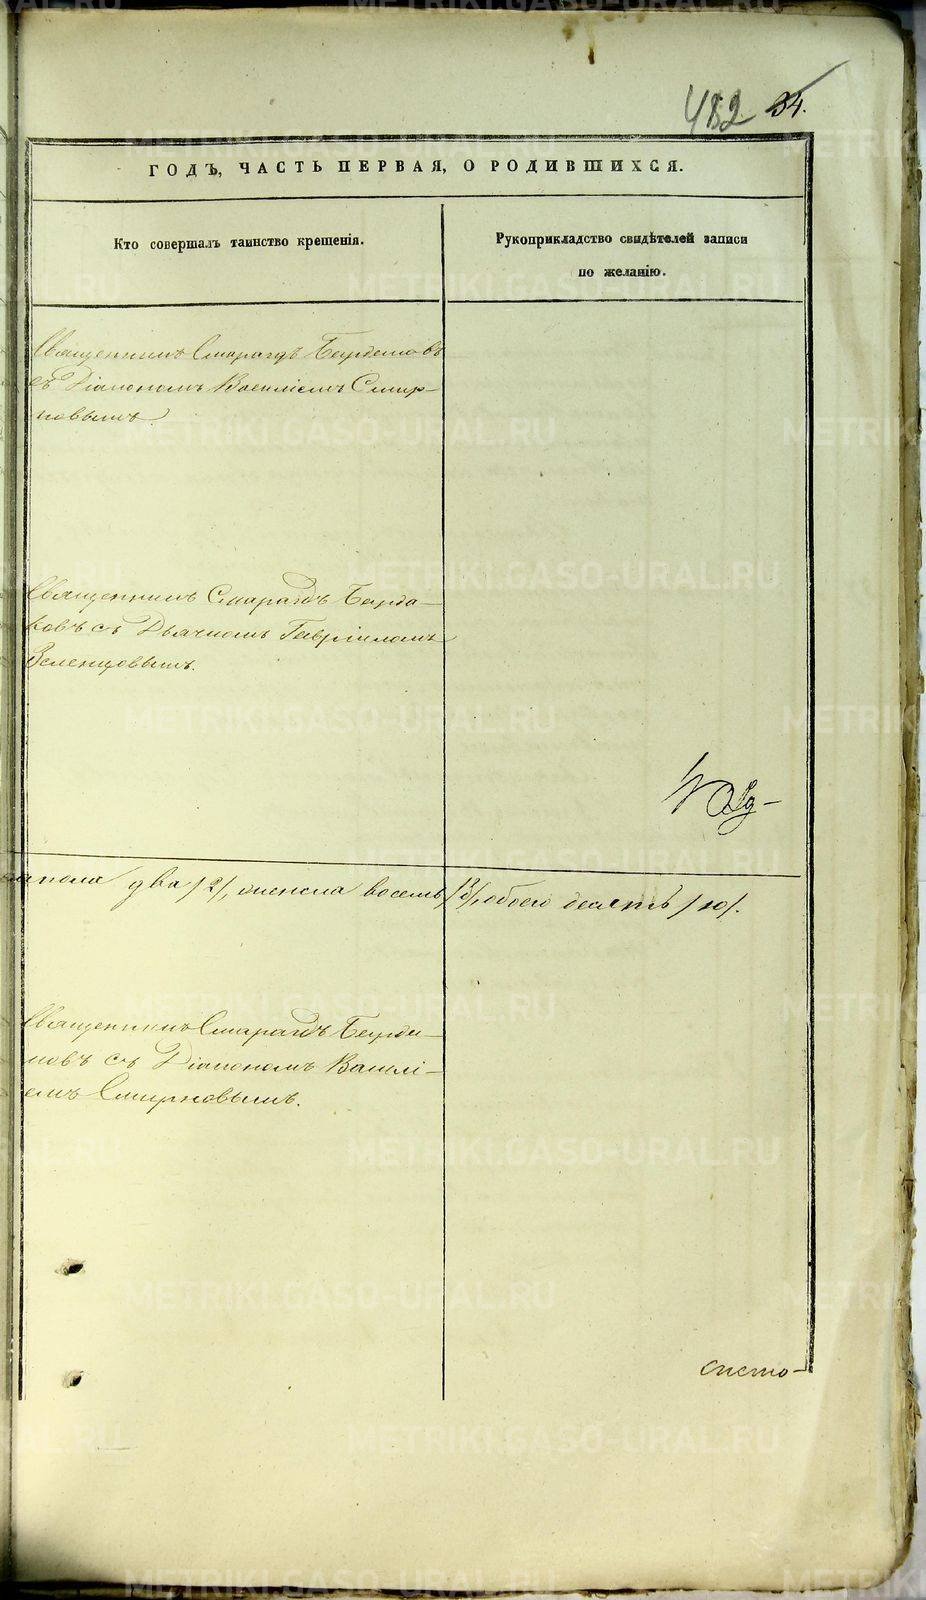 482 34.
ГОДЪ, ЧАСТЬ ПЕРВАЯ, О РОДИВШИХСЯ.
Кто совершалъ таинство крещенія.
Рукоприкладство свидѣтелей записи
по желанію.
Священникъ Смарагдъ
съ Діакономъ Василіемъ Смир-
новымъ.
Священникъ Смарагдъ
съ Дьячкомъ Гавріиломъ
Зеленцовымъ.
пола два /2/, женска восемь /8/, обоего десять /10/.
Священникъ Смарагдъ
съ Діакономъ Василі-
емъ Смирновымъ.
METRIKI.GASO-URAL.RU